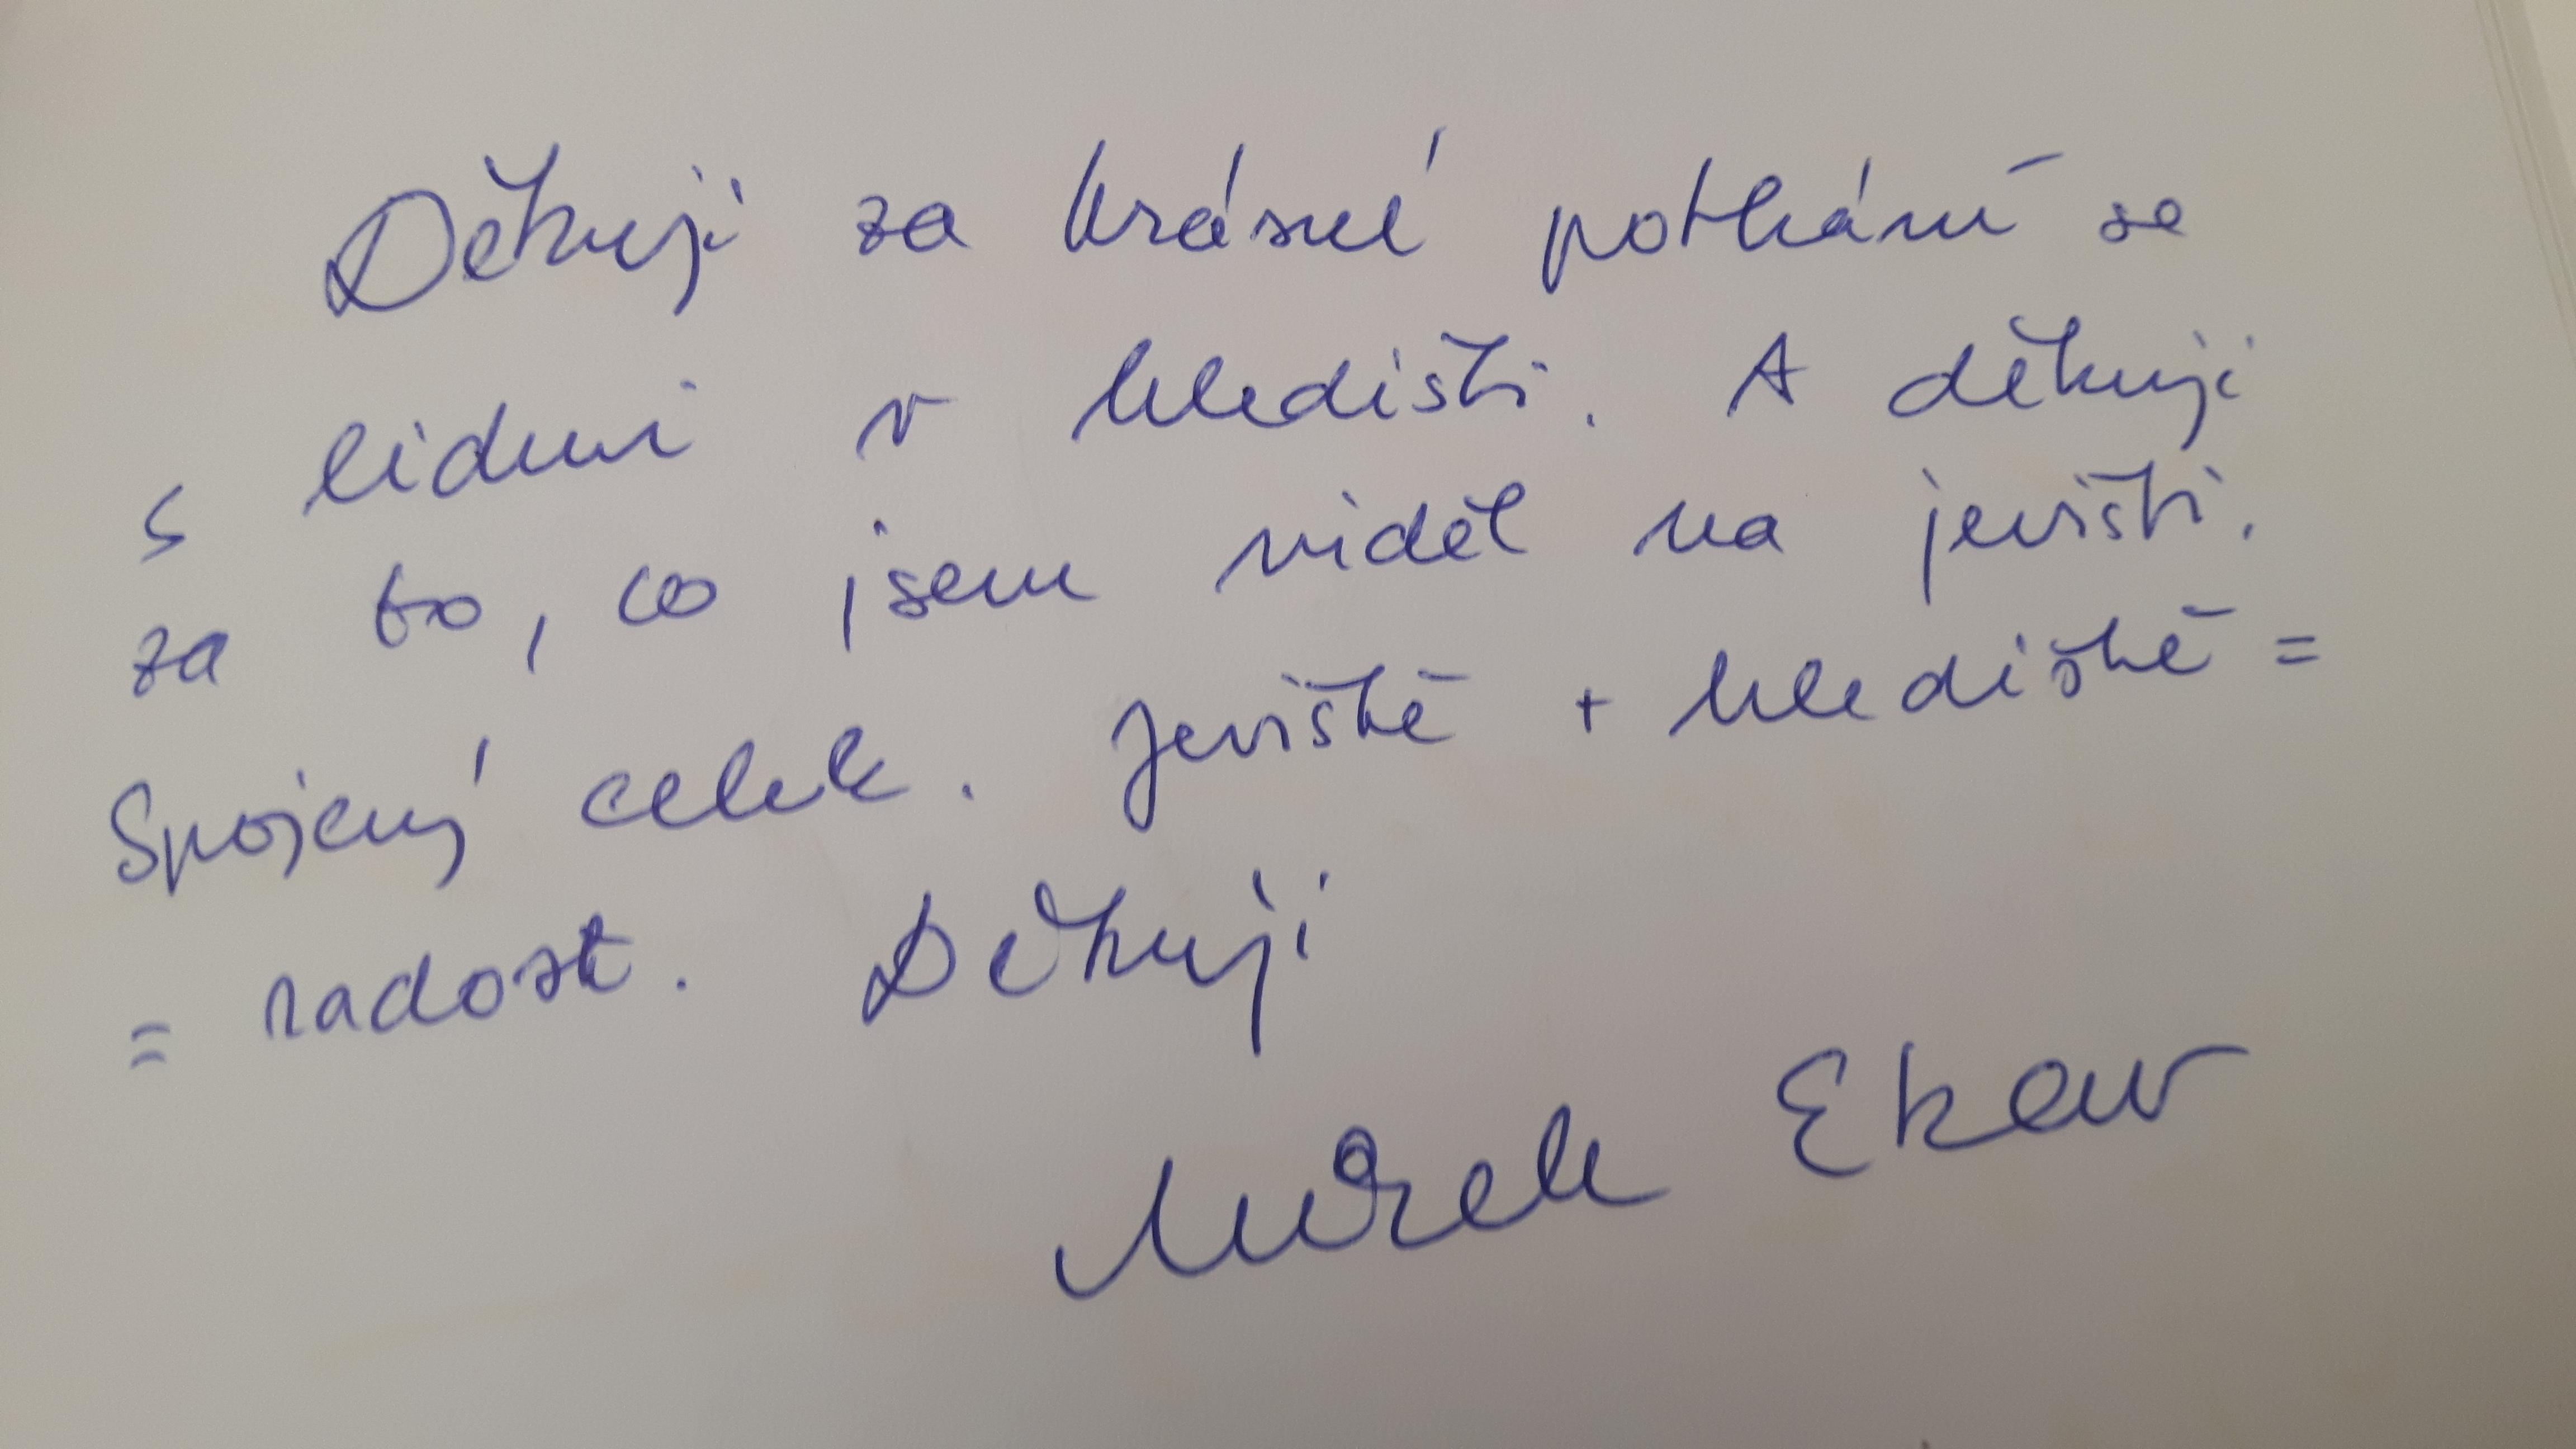 Děkuji za krásné potkání se
s lidmi v hledišti. A děkuji
za to, co jsem viděl na jevišti.
Spojený celek. Jeviště + hlediště =
= radost. Děkuji
Mirek